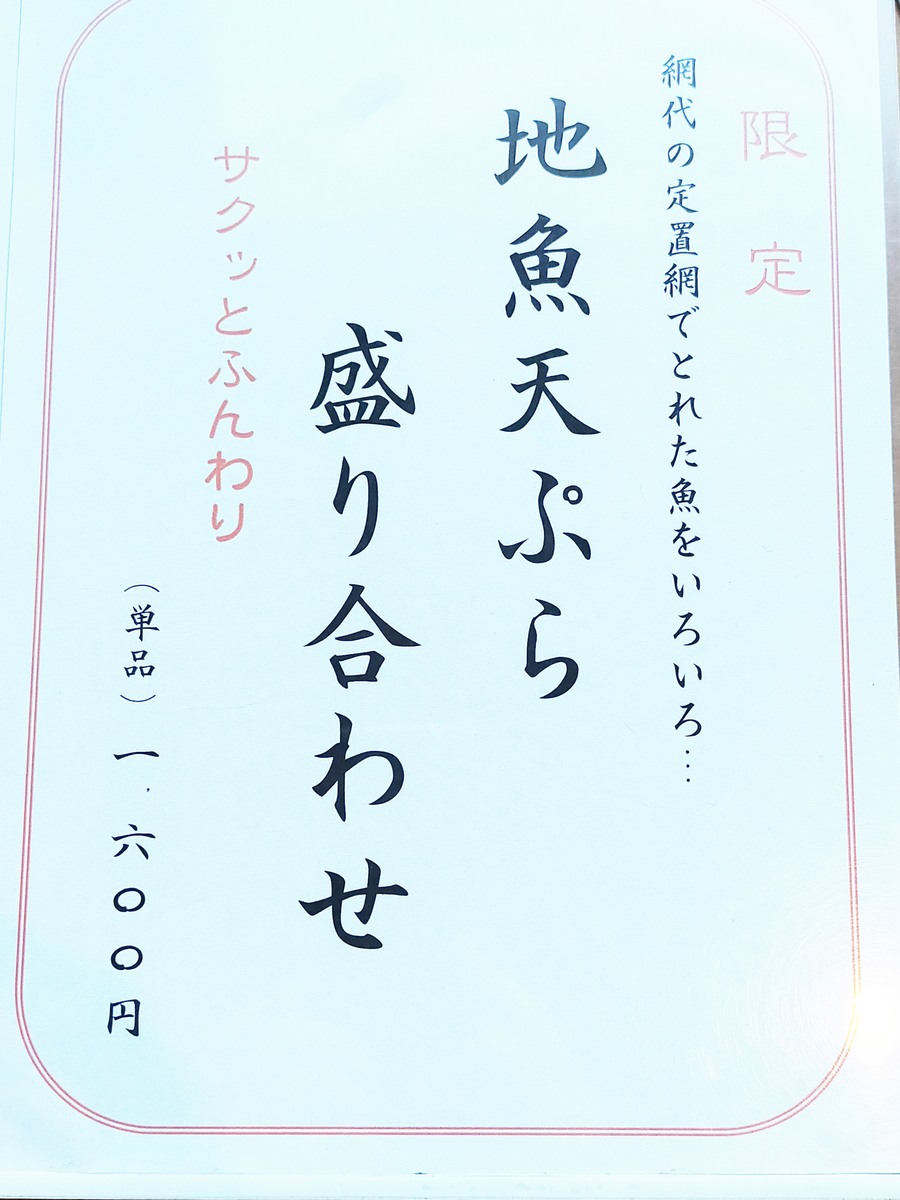 限定
網代の定置網でとれた魚をいろいろ…
地魚天ぷら
盛り合わせ
サクッとふんわり
（単品）一．六〇〇円